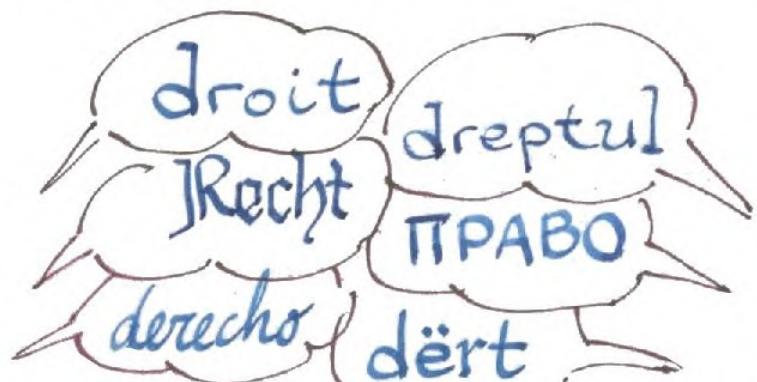 droit
dreptul
Recht
ПРАВО
derecho
dërt